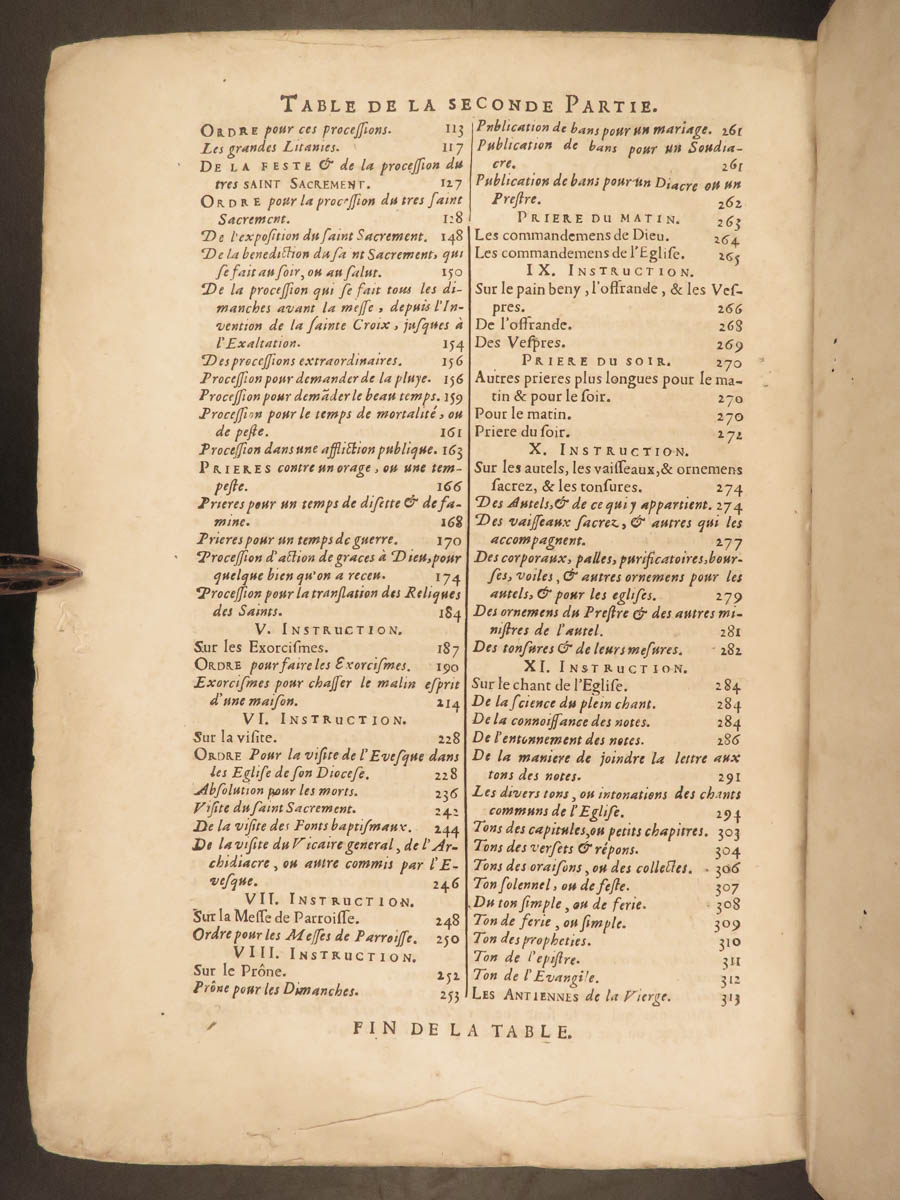 TABLE DE LA SECONDE PARTIE.
ORDRE pour ces processions. 113
Les grandes Litanies. 117
DE LA FESTE & de la procession du
tres SAINT SACREMENT. 127
ORDRE pour la procession du tres saint
Sacrement. 128
De l'exposition du saint Sacrement. 148
De la benediction du sa nt Sacrement, qui
se fait au soir, ou au salut. 150
De la procession qui se fait tous les di-
manches avant la messe, depuis l'In-
vention de la sainte Croix, jusques à
l'Exaltation. 154
Des processions extraordinaires. 156
Procession pour demander de la pluye. 156
Procession pour demãder le beau temps. 159
Procession pour le temps de mortalité, ou
de peste. 161
Procession dans une affliction publique. 163
PRIERES contre un orage, ou une tem-
peste. 166
Prieres pour un temps de disette & de fa-
mine. 168
Prieres pour un temps de guerre. 170
Procession d'action de graces à Dieu, pour
quelque bien qu'on a receu. 174
Procession pour la translation des Reliques
des Saints. 184
V. INSTRUCTION.
Sur les Exorcismes. 187
ORDRE pour faire les Exorcismes. 190
Exorcismes pour chasser le malin esprit
d'une maison. 214
VI. INSTRUCTION.
Sur la visite. 228
ORDRE Pour la visite de l'Evesque dans
les Eglise de son Diocese. 228
Absolution pour les morts. 236
Visite du saint Sacrement. 242
De la visite des Fonts baptismaux. 244
De la visite du Vicaire general, de l'Ar-
chidiacre, ou autre commis par l'E-
vesque. 246
VII. INSTRUCTION.
Sur la Messe de Parroisse. 248
Ordre pour les Messes de Parroisse. 250
VIII. INSTRUCTION.
Sur le Prône. 252
Prône pour les Dimanches. 253
Pnblication de bans pour un mariage. 261
Publication de bans pour un Soudia-
cre. 261
Publication de bans pour un Diacre ou un
Prestre. 262
PRIERE DU MATIN. 263
Les commandemens de Dieu. 264
Les commandemens de l'Eglise. 265
IX. INSTRUCTION.
Sur le pain beny, l'offrande, & les Ves-
pres. 266
De l'offrande. 268
Des Vespres. 269
PRIERE DU SOIR. 270
Autres prieres plus longues pour le ma-
tin & pour le soir. 270
Pour le matin. 270
Priere du soir. 272
X. INSTRUCTION.
Sur les autels, les vaisseaux, & ornemens
sacrez, & les tonsures. 274
Des Autels, & de ce qui y appartient. 274
Des vaisseaux sacrez, & autres qui les
accompagnent. 277
Des corporaux, palles, purificatoires, bour-
ses, voiles, & autres ornemens pour les
autels, & pour les eglises. 279
Des ornemens du Prestre & des autres mi-
nistres de l'autel. 281
Des tonsures & de leurs mesures. 282
XI. INSTRUCTION.
Sur le chant de l'Eglise. 284
De la science du plein chant. 284
De la connoissance des notes. 284
De l'entonnement des notes. 286
De la maniere de joindre la lettre aux
tons des notes. 291
Les divers tons, ou intonations des chants
communs de l'Eglise. 294
Tons des capitules, ou petits chapitres. 303
Tons des versets & répons. 304
Tons des oraisons, ou des collectes. 306
Ton solennel, ou de feste. 307
Du ton simple, ou de ferie. 308
Ton de ferie, ou simple. 309
Ton des propheties. 310
Ton de l'epistre. 311
Ton de l'Evangile. 312
LES ANTIENNES de la Vierge. 313
FIN DE LA TABLE.